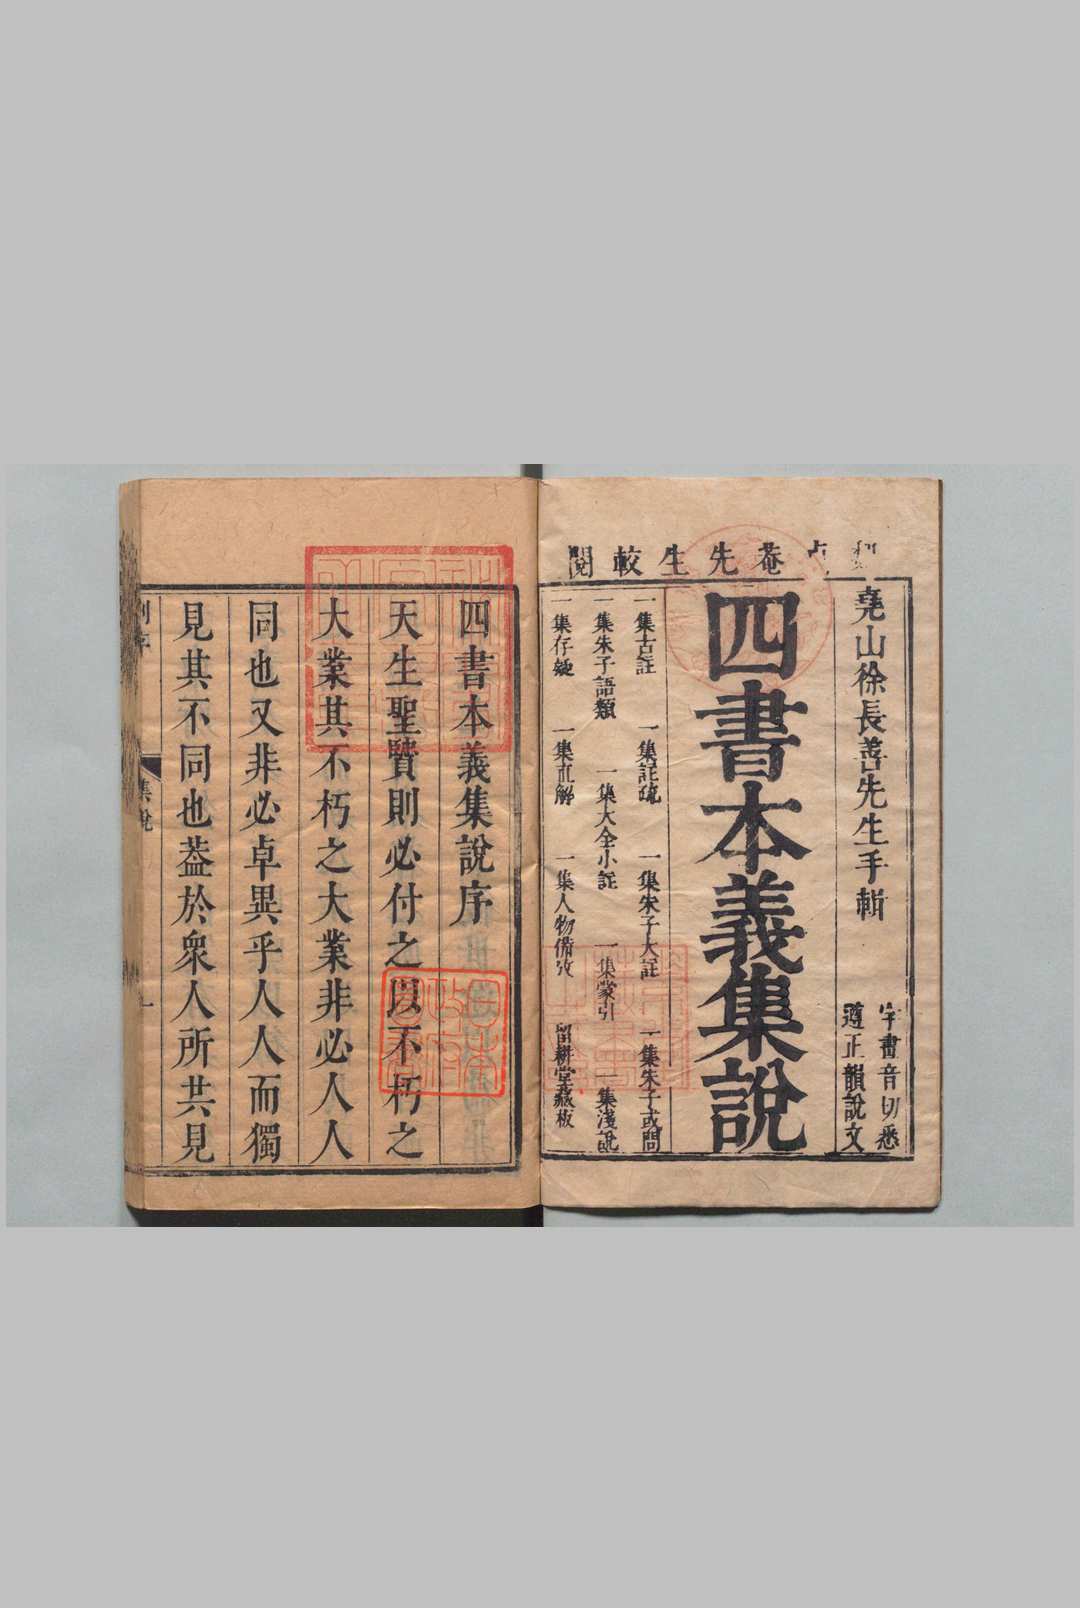 菴先生較閱
堯山徐長善先生手輯
字畫音切悉
遵正韻說文
四書本義集說
一集古註 一集註疏 一集朱子大註 一集朱子或問
一集朱子語類 一集大全小註 一集蒙引 一集淺說
一集存疑 一集直解 一集人物備攷 留耕堂藏板
四書本義集說序
天生聖賢則必付之以不朽之
大業其不朽之大業非必人人
同也又非必卓異乎人人而獨
見其不同也葢於衆人所共見
集說